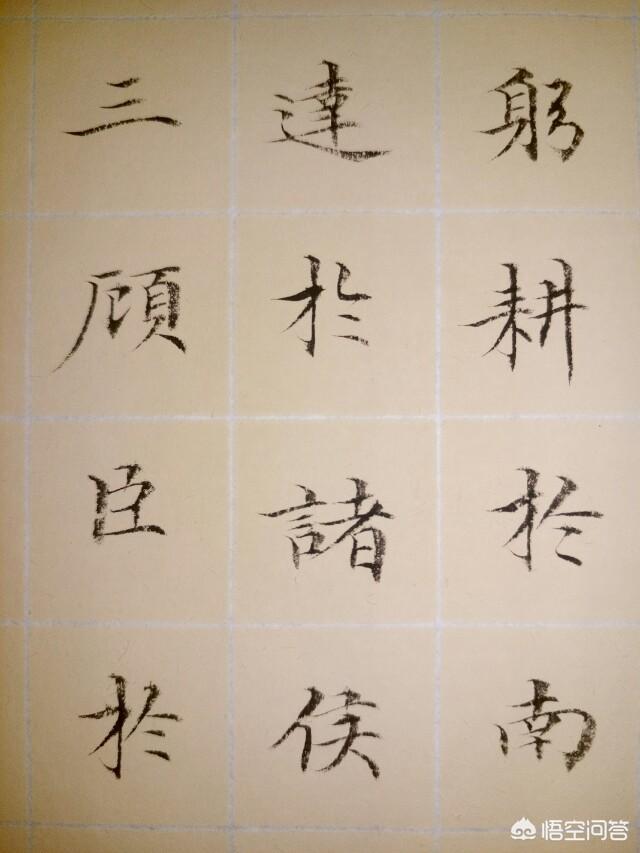 躬耕於南
達於諸侯
三顧臣於
悟空问答